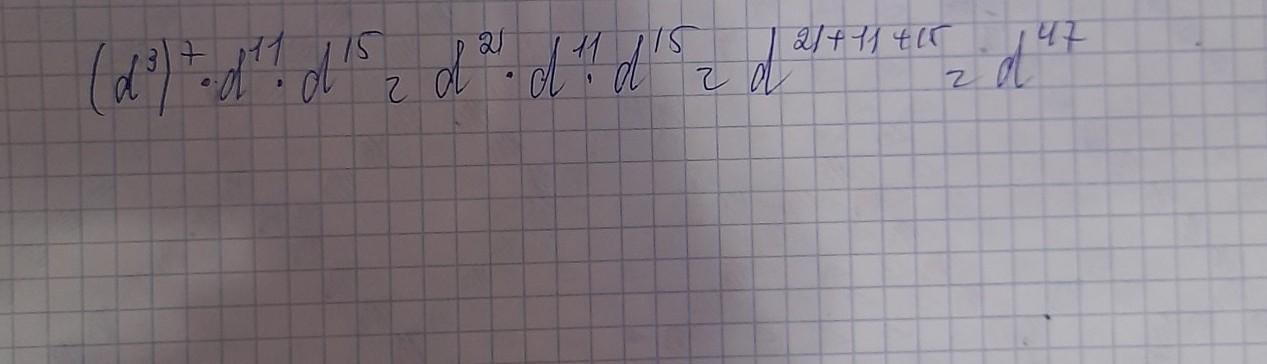 (d³)⁷·d¹¹·d¹⁵ = d²¹·d¹¹·d¹⁵ = d²¹⁺¹¹⁺¹⁵ = d⁴⁷